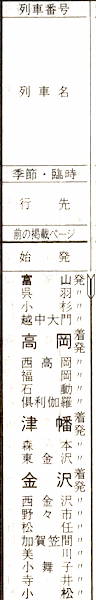 列車番号
列車名
季節・臨時
行先
前の掲載ページ
始発
富山発
呉羽〃
小杉〃
越中大門〃
高岡着発
西高岡〃
福岡〃
石動〃
倶利伽羅〃
津幡着発
森本〃
東金沢〃
金沢着発
西金沢〃
野々市〃
松任〃
加賀笠間〃
美川〃
小舞子〃
寺井〃
小松〃